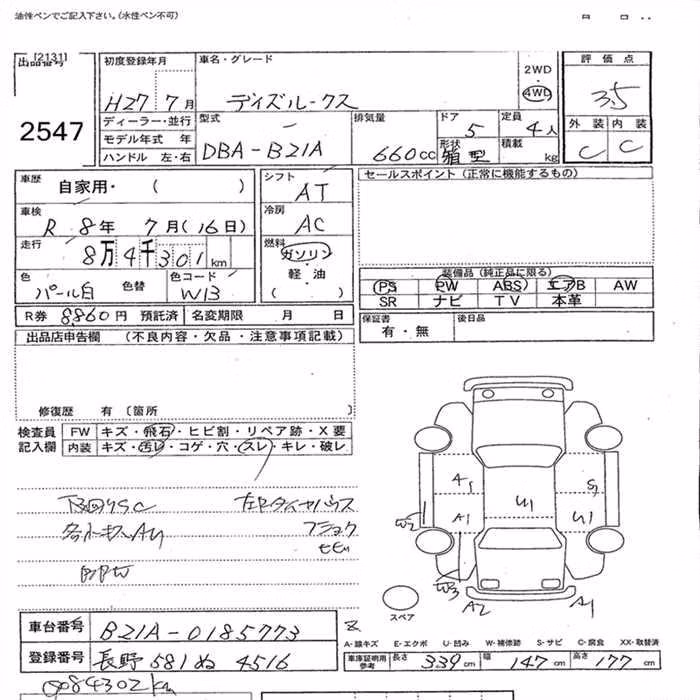 油性ペンでご記入下さい。(水性ペン不可) 月 日
出品番号 [2131]
2547
初度登録年月 H27 7月
車名・グレード デイズルークス
2WD
4WD
評価点 3.5
外装 C 内装 C
ディーラー・並行
モデル年式 年
ハンドル 左・右
型式 DBA-B21A
排気量 660cc
ドア 5
形状 箱型
定員 4人
積載 kg
車歴 自家用・( )
車検 R 8年 7月(16日)
走行 8万4千301km
色 パール白 色替
色コード W13
シフト AT
冷房 AC
燃料 ガソリン・軽油
( )
セールスポイント(正常に機能するもの)
装備品(純正品に限る)
PS PW ABS エアB AW
SR ナビ TV 本革
R券 8860円 預託済 名変期限 月 日
保証書 有・無
後日品
出品店申告欄 (不良内容・欠品・注意事項記載)
修復歴 有〔箇所 〕
検査員記入欄
FW キズ・飛石・ヒビ割・リペア跡・X要
内装 キズ・汚レ・コゲ・穴・スレ・キレ・破レ
A1 S1
W2 A1 U1 U1
W3 A2 A1
スペア
車台番号 B21A-0185773
登録番号 長野 581 ぬ 4516
084302km
A-線キズ E-エクボ U-凹み W-補修跡 S-サビ C-腐食 XX-取替済
車庫証明用参考 長さ 339cm 幅 147cm 高さ 177cm